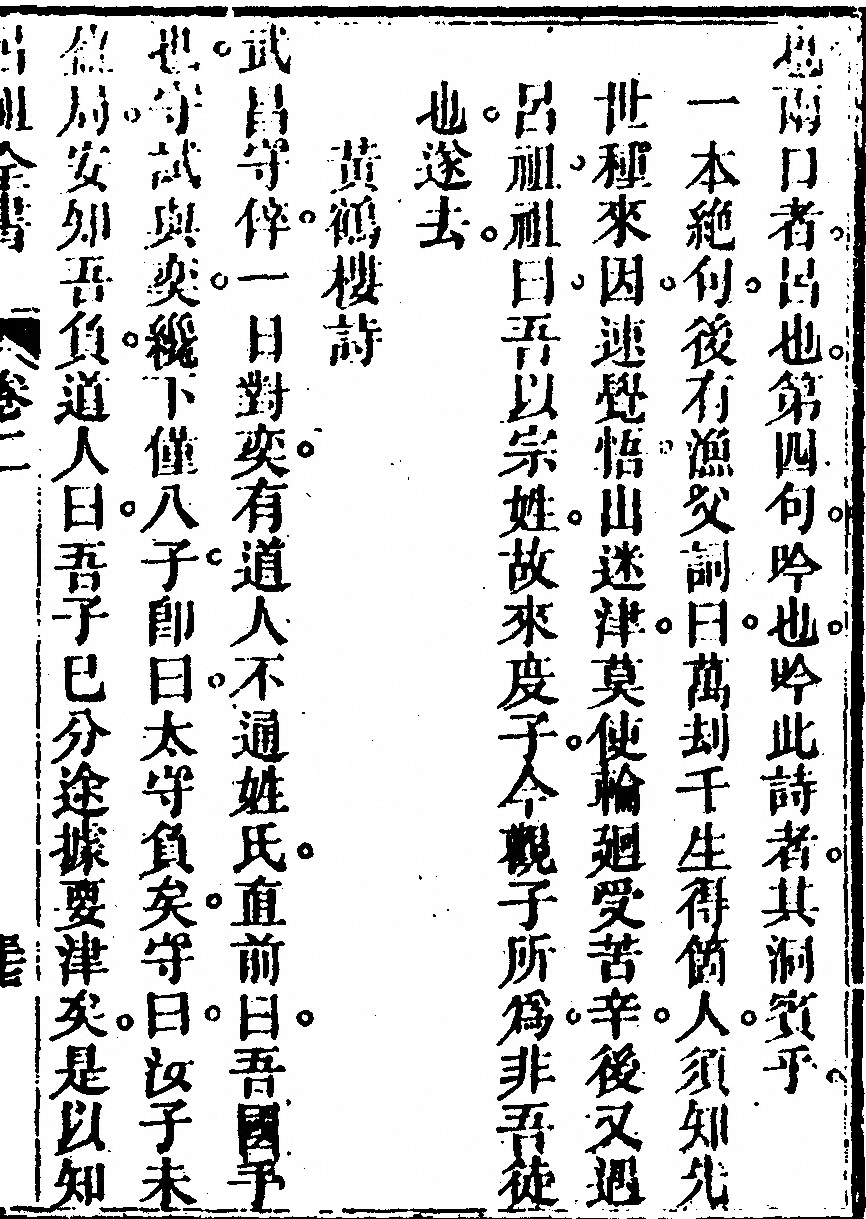 也兩口者呂也第四句吟也吟此詩者其洞賓乎
一本絶句後有漁父詞曰萬刼千生得箇人須知先
世種來因速覺悟出迷津莫使輪廻受苦辛後又遇
呂祖祖曰吾以宗姓故來度子今觀子所爲非吾徒
也遂去
黃鶴樓詩
武昌守倅一日對奕有道人不通姓氏直前曰吾國手
也守試與奕纔下僅八子卽曰太守負矣守曰汝子未
盈局安知吾負道人曰吾子已分途據要津矣是以知
呂祖全書 卷二